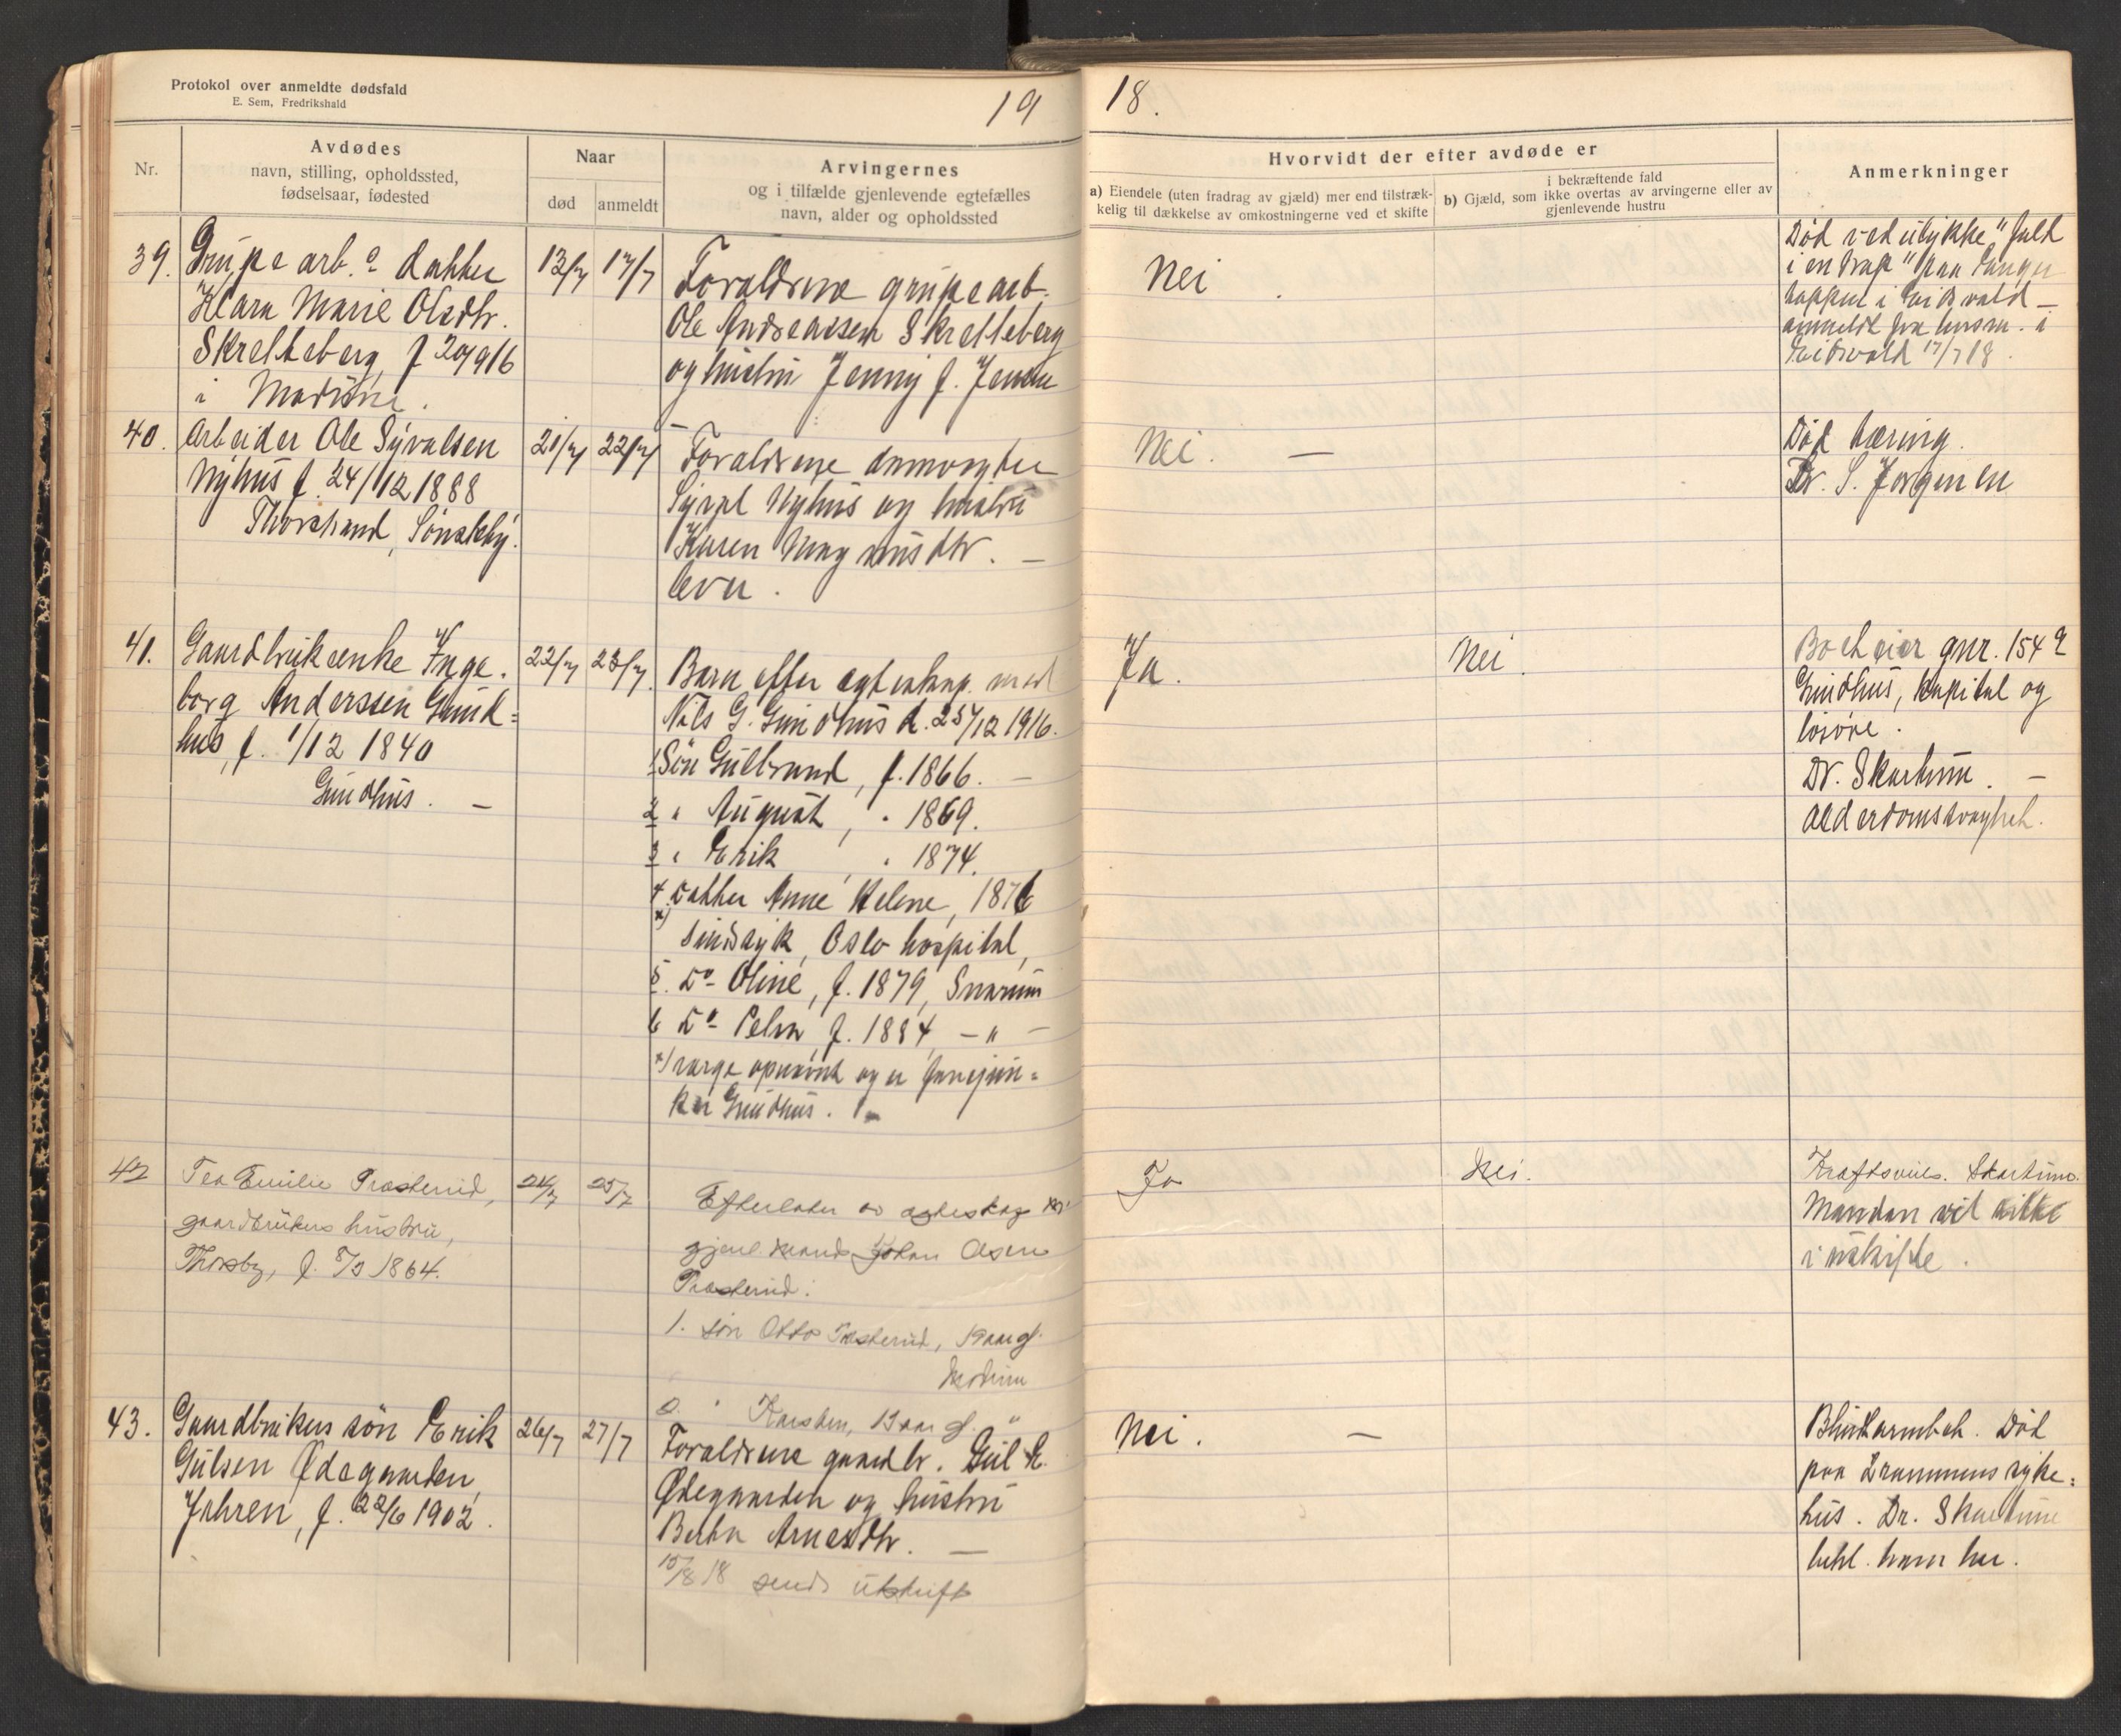 Protokol over anmeldte dødsfald
E. Sem, Fredrikshald
19
18.
Nr.
Avdødes
navn, stilling, opholdssted,
fødselsaar, fødested
Naar
død
anmeldt
Arvingernes
og i tilfælde gjenlevende egtefælles
navn, alder og opholdssted
Hvorvidt der efter avdøde er
a) Eiendele (uten fradrag av gjæld) mer end tilstræk-
kelig til dækkelse av omkostningerne ved et skifte
i bekræftende fald
b) Gjæld, som ikke overtas av arvingerne eller av
gjenlevende hustru
Anmerkninger
39.
Grupearb. datter
Klara Marie Olsdtr.
Skretteberg, f 20/9 16
i Modum.
13/7
17/7
Forældrene grupearb.
Ole Andreassen Skretteberg
og hustru Jenny f. Jensen
Nei
Død ved ulykke "fald
i en trap" paa
i Eidsvold —
anmeldt fra lensm. i
Eidsvold 17/7 18.
40.
Arbeider Ole Syvalsen
Nyhus f. 24/12 1888
Thorstrand, Sønsteby.
21/7
22/7
Forældrene
Syval Nyhus og hustru
Karen Magnusdtr. —
lever.
Nei. —
Død tæring.
Dr. S. Jørgensen
41.
Gaardbrukerenke Inge-
borg Anderssen Gund=
hus, f. 1/12 1840
Gundhus. —
22/7
23/7.
Barn efter egteskap med
Nils G. Gundhus d. 25/12 1916.
1 Søn Gulbrand, f. 1866. —
2 " August, " 1869.
3 " Erik, " 1874.
4 Datter Anne Helene, 1876
x) sindssyk, Oslo hospital,
5. Do Oline, f. 1879, Snarum
6 Do Petra, f. 1884, — " —
x) værge opnævnt og er
Gundhus. —
Ja.
Nei.
Boet eier gnr. 154
Gundhus, kapital og
løsøre.
Dr. Skartum. —
Alderdomssvaghet.
42
Tea Emilie Præsterud,
gaardbrukers hustru,
Thorsby, f. 8/3 1864.
24/7
25/7
Efterlater av egteskap m.
gjenl. mand Johan Olsen
Præsterud:
1. søn Otto Præsterud, 19 aar gl.
Modum
2. " Karsten, 13 aar gl. "
Ja
Nei.
Kræftsvuls. Skartum.
Manden vil sitte
i uskifte.
43.
Gaardbrukers søn Erik
Gulsen Ødegaarden,
Jahren, f. 22/6 1902.
26/7
27/7
Forældrene gaardbr. Gul E.
Ødegaarden og hustru
Berta Arnesdtr. —
15/8 18 sendt utskrift
Nei. —
Blindtarmbet. Død
paa Drammens syke=
hus. Dr. Skartum
beh. ham her.